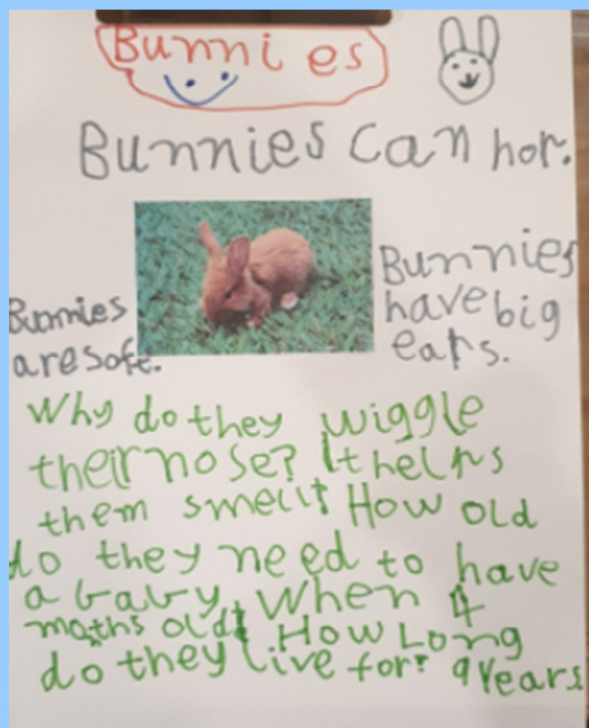 Bunnies
Bunnies can hop.
Bunnies
are soft.
Bunnies
have big
ears.
Why do they wiggle
their nose? It helps
them smell! How old
do they need to have
a baby, When 4
moths old! How Long
do they live for? 9 Years